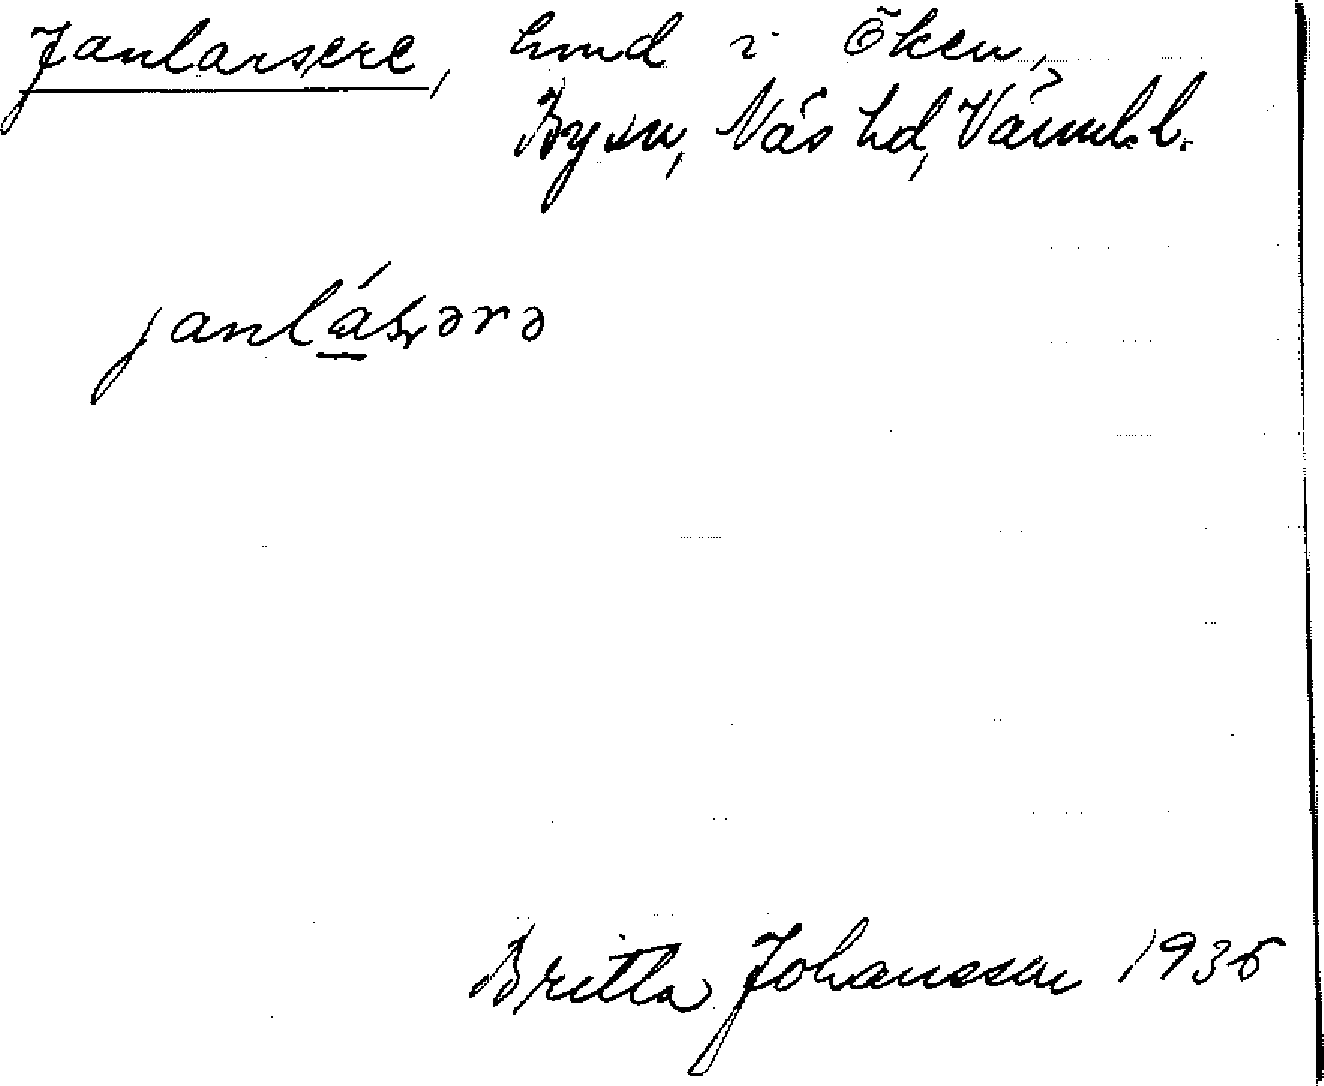 Janlarsere, hmd i Öken,
By sn, Näs hd, Värml. l.
janláʂərə
Britta Johansson 1936